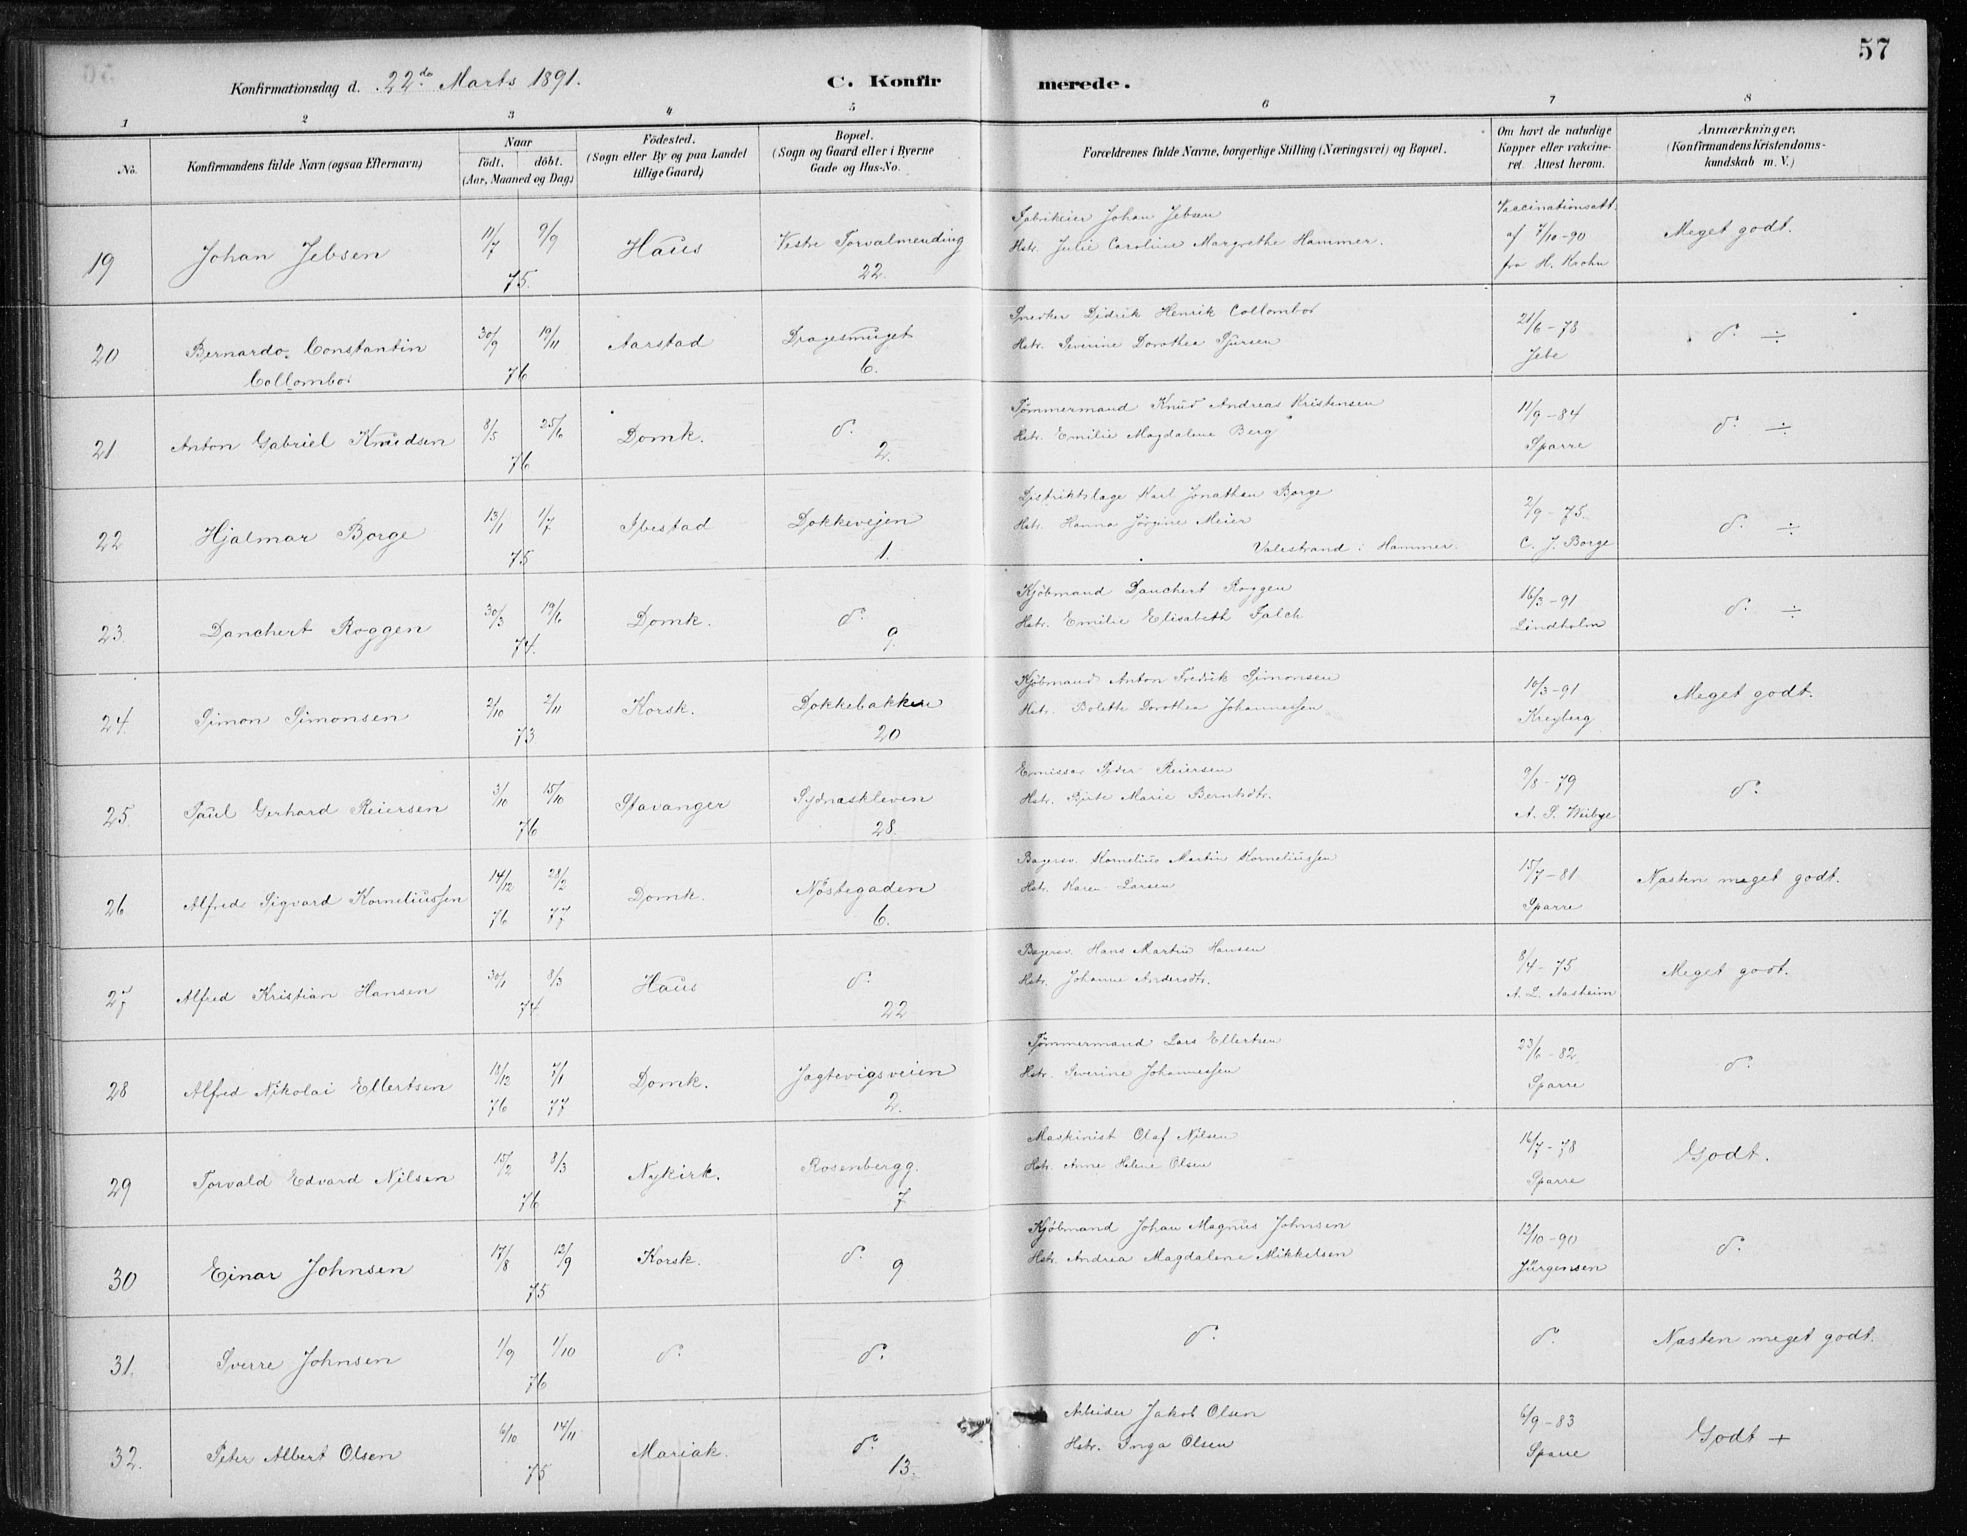 57
Konfirmationsdag d. 22de Marts 1891.
C. Konfirmerede.
1 2 3 4 5 6 7 8
No.
Konfirmandens fulde Navn (ogsaa Efternavn)
Naar
födt. döbt.
(Aar, Maaned og Dag)
Födested.
(Sogn eller By og paa Landet
tillige Gaard)
Bopæl.
(Sogn og Gaard eller i Byerne
Gade og Hus-No.
Forældrenes fulde Navne, borgerlige Stilling (Næringsvei) og Bopæl.
Om havt de naturlige
Kopper eller vakcine-
ret. Attest herom.
Anmærkninger.
(Konfirmandens Kristendoms-
kundskab m. V.)
19 Johan Jebsen 11/7 9/9 75. Haus Vestre Torvalmending 22.
Fabrikeier Johan Jebsen
Hstr. Julie Caroline Margrethe Hammer.
Vaccinationsatt.
af 7/10-90
fra H. Krohn
Meget godt.
20 Bernardo Constantin
Collombor
30/9 19/11 76 Aarstad Dragesmuget 6.
Snedker Didrik Henrik Collombor
Hstr. Severine Dorothea Sjursen
21/6-78
Jebe
do ÷
21 Anton Gabriel Knudsen 8/5 25/6 76 Domk. do 2.
Tömmermand Knud Andreas Kristensen
Hstr. Emilie Magdalene Berg
11/9-84
Sparre
do ÷
22 Hjalmar Borge 13/1 1/7 75 Ibestad Dokkevejen 1.
Distriktslæge Karl Jonathan Borge
Hstr. Hanna Jörgine Meier
Valestrand i Hammer.
2/9-75.
C. J. Borge
do ÷
23. Danchert Roggen 30/3 19/6 74. Domk. do 9.
Kjöbmand Danchert Roggen
Hstr. Emilie Elisabeth Falch
16/3-91
Lindholm
do ÷
24. Simon Simonsen 2/10 2/11 73 Korsk. Dokkebakken 20
Kjöbmand Anton Fredrik Simonsen
Hstr. Bolette Dorothea Johannessen
10/3-91
Kreyberg
Meget godt.
25. Paul Gerhard Reiersen 3/10 15/10 76 Stavanger Sydnæskleven 28.
Emissær Peder Reiersen
Hstr. Birte Marie Berntsdtr.
9/8-79
do
26 Alfred Sigvard Korneliussen 14/12 76 28/2 77 Domk. Nöstegaden 6.
Bagersv. Kornelius Martin Korneliussen
Hstr. Karen Larsen
15/7-81
Sparre
Næsten meget godt.
27 Alfred Kristian Hansen 30/1 8/3 74 Haus do 22
Bagersv. Hans Martin Hansen
Hstr. Johanne Andersdtr.
8/4-75
A. L. Aasheim
Meget godt.
28 Alfred Nikolai Ellertsen 18/12 76 7/1 77 Domk. Jagtevigsveien 2.
Tömmermand Lars Ellertsen
Hstr. Severine Johannessen
23/6-82.
Sparre
do
29 Torvald Edvard Nilsen 15/2 8/3 76 Nykirk. Rosenbergg. 7
Maskinist Olaf Nilsen
Hstr. Anne Helene Olsen
16/7-78
Sparre
Godt.
30 Einar Johnsen 17/8 12/9 75 Korsk. do 9
Kjöbmand Johan Magnus Johnsen
Hstr. Andrea Magdalene Mikkelsen
12/10-90
Jürgensen
do
31. Sverre Johnsen 1/9 1/10 76 do do
do
do
Næsten meget godt.
32. Peter Albert Olsen 6/10 14/11 75 Mariak. do 13.
Arbeider Jakob Olsen
Hstr. Inga Olsen
6/9-83
Sparre
Godt +